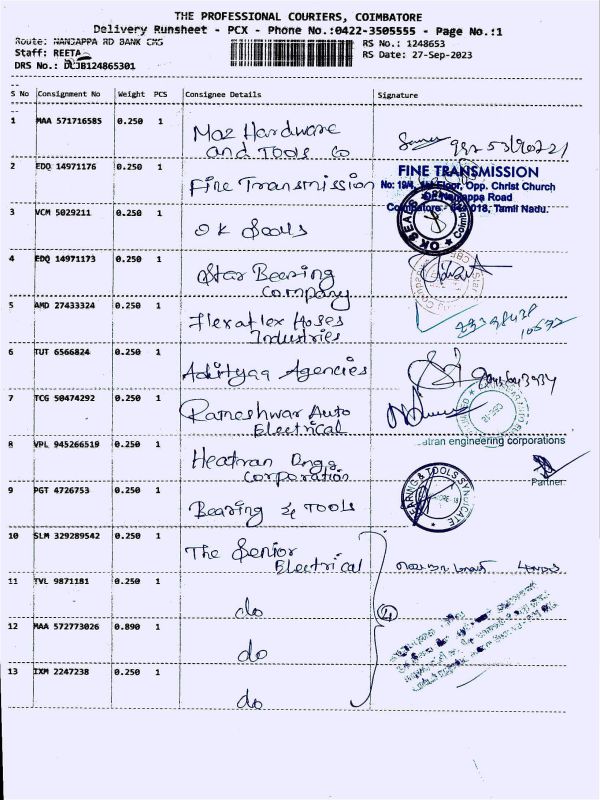 THE PROFESSIONAL COURIERS, COIMBATORE
Delivery Runsheet - PCX - Phone No.:0422-3505555 - Page No.:1
Route: NANJAPPA RD BANK CMS
RS No.: 1248653
Staff: REETA
RS Date: 27-Sep-2023
DRS No.: DLJB124865301
S No Consignment No Weight PCS Consignee Details Signature
1 MAA 571716585 0.250 1 Maz Hardware
and Tools Co
2 EDQ 14971176 0.250 1 Fine Transmission
FINE TRANSMISSION
No: 19/4, Floor, Opp. Christ Church
Nanjappa Road
Coimbatore - 641 018, Tamil Nadu.
3 VCM 5029211 0.250 1 OK Seals
OK SEALS
4 EDQ 14971173 0.250 1 Star Bearing
Company
5 AMD 27433324 0.250 1 Flexaflex Hoses
Industries
6 TUT 6566824 0.250 1 Adityaa Agencies
7 TCG 50474292 0.250 1 Rameshwar Auto
Electrical
8 VPL 945266519 0.250 1 Heatran Engg
Corporation
atran engineering corporations
Partner
9 PGT 4726753 0.250 1 Bearing & Tools
BEARING & TOOLS SYNDICATE
10 SLM 329289542 0.250 1 The Senior
Electrical
11 TVL 9871181 0.250 1 do
④
12 MAA 572773026 0.890 1 do
13 IXM 2247238 0.250 1 do